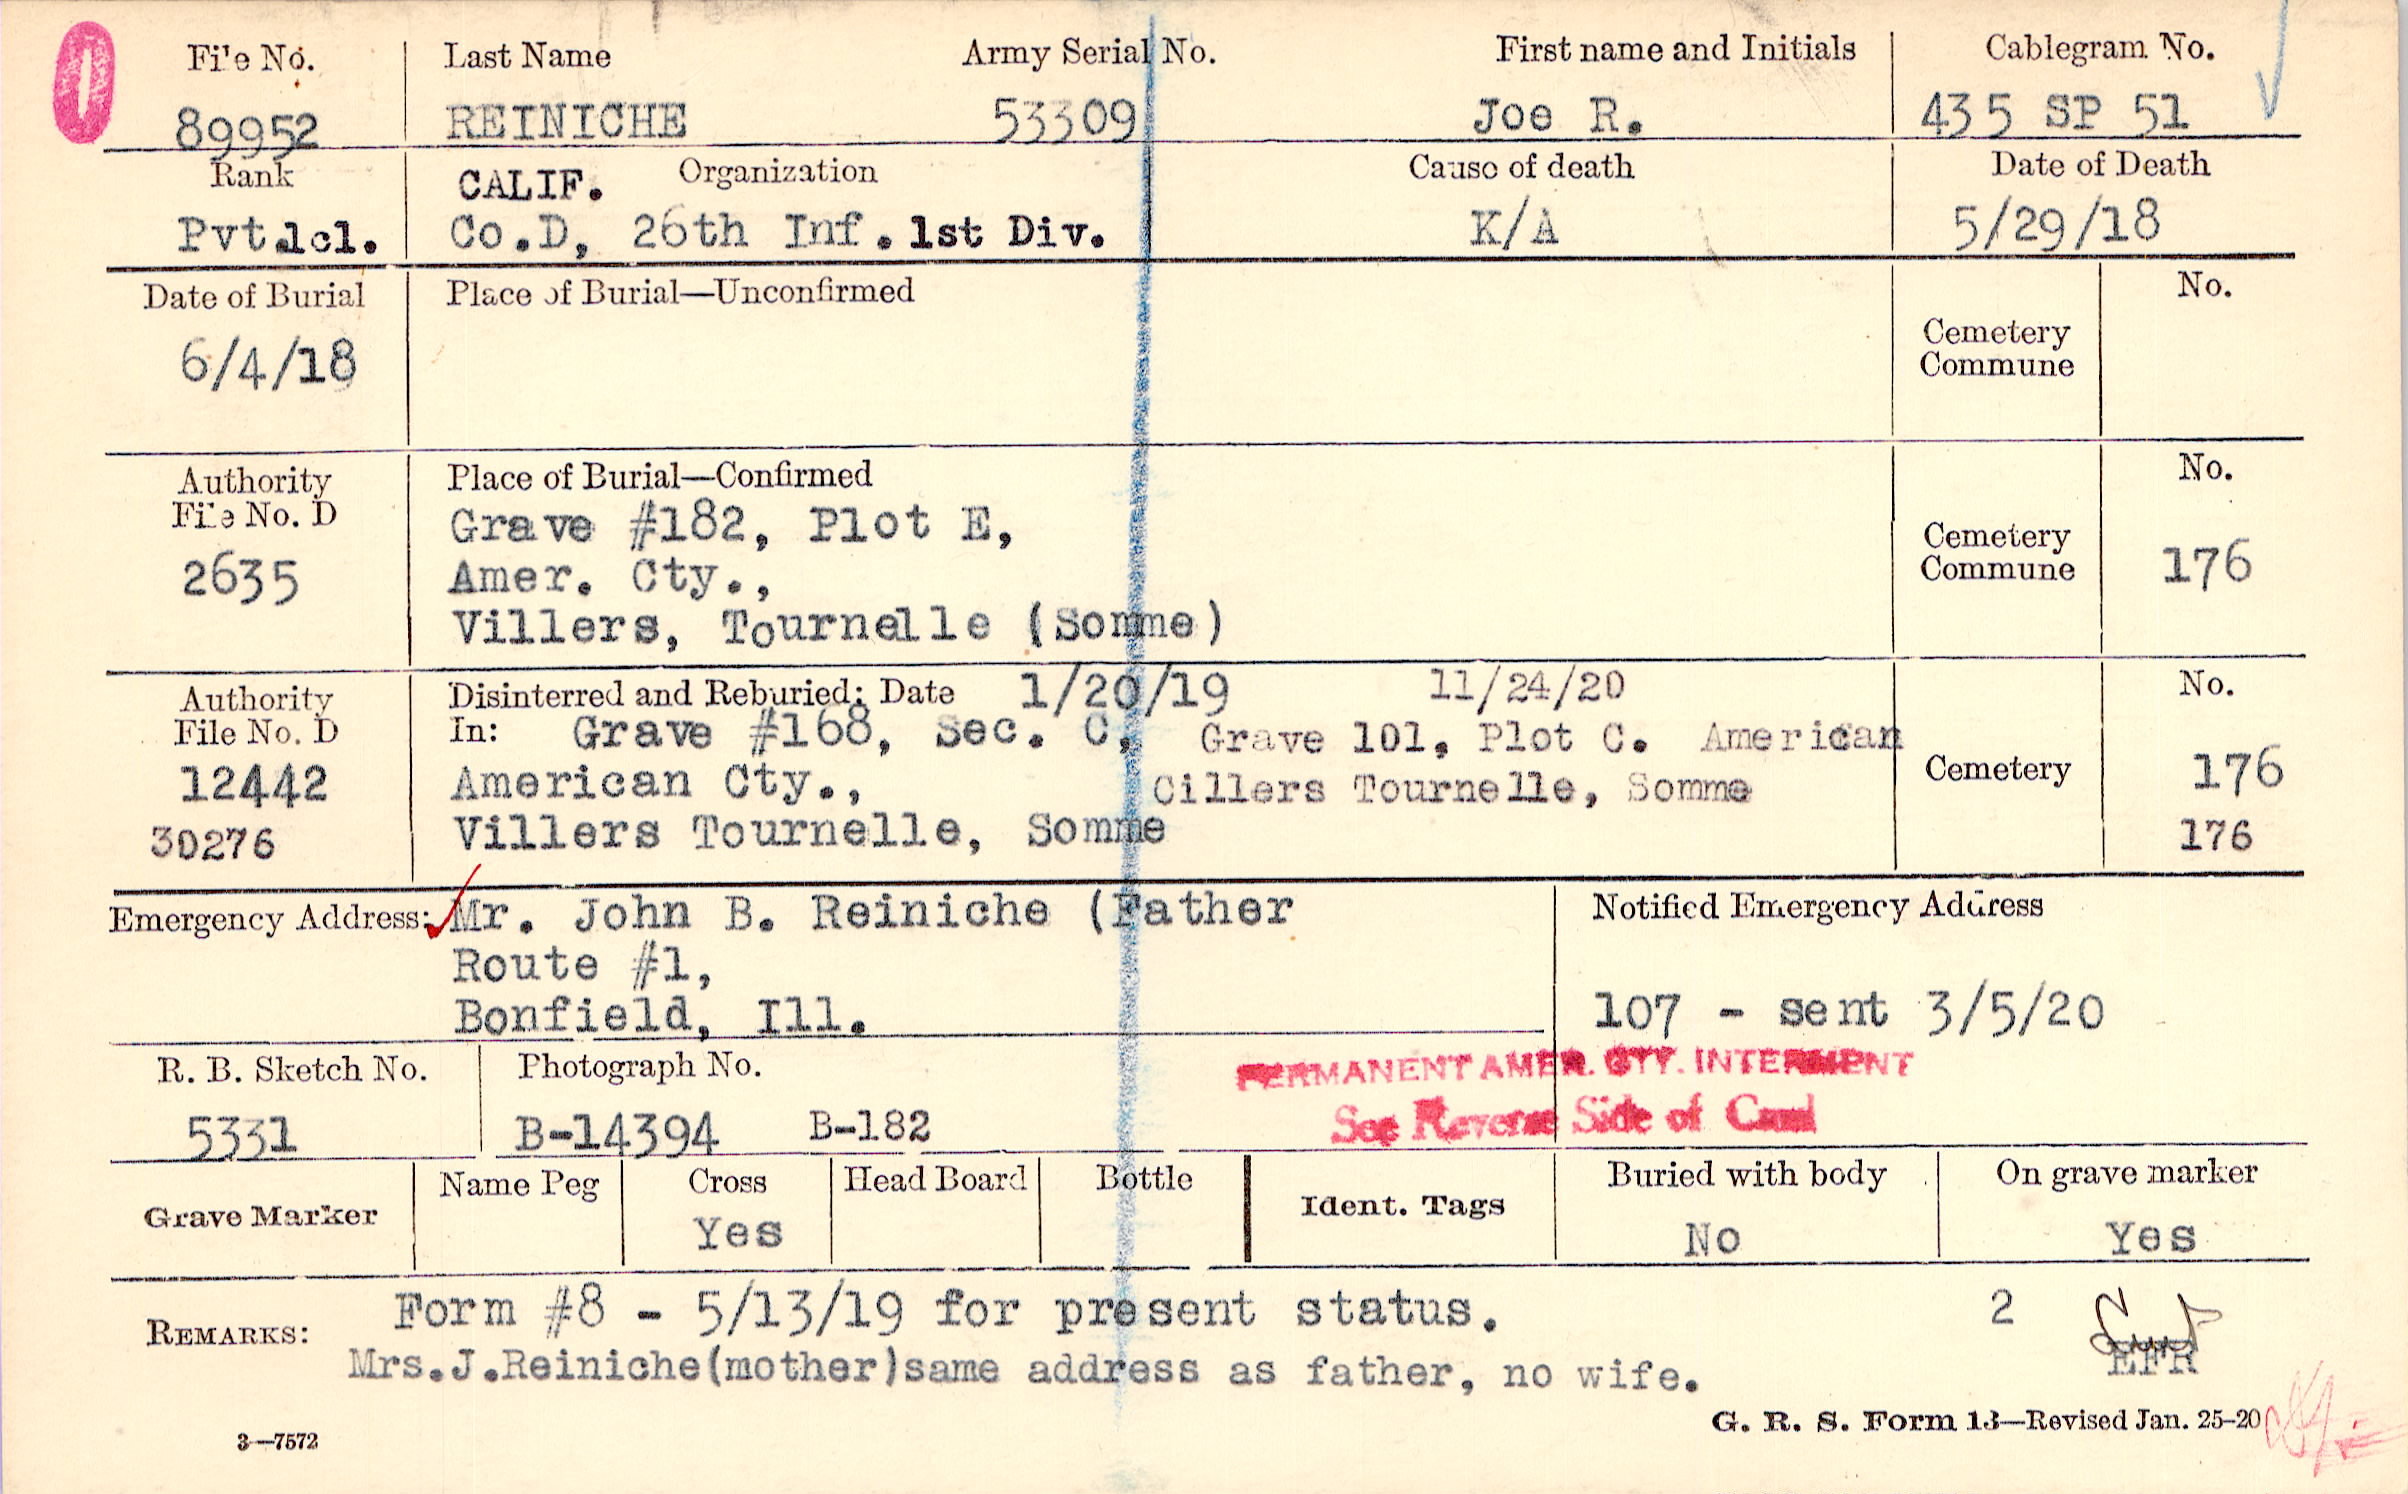 File No. Last Name Army Serial No. First name and Initials Cablegram No.
89952 REINICHE 53309 Joe R. 435 SP 51
Rank CALIF. Organization Cause of death Date of Death
Pvt.1cl. Co.D, 26th Inf. 1st Div. K/A 5/29/18
Date of Burial Place of Burial—Unconfirmed No.
6/4/18
Cemetery
Commune
Authority Place of Burial—Confirmed No.
File No. D Grave #182, Plot E,
2635 Amer. Cty.,
Villers, Tournelle (Somme)
Cemetery
Commune 176
Authority Disinterred and Reburied: Date 1/20/19 11/24/20 No.
File No. D In: Grave #168, Sec. C, Grave 101, Plot C. American
12442 American Cty., Cillers Tournelle, Somme Cemetery 176
30276 Villers Tournelle, Somme 176
Emergency Address: Mr. John B. Reiniche (Father Notified Emergency Address
Route #1,
Bonfield, Ill. 107 - sent 3/5/20
R. B. Sketch No. Photograph No. PERMANENT AMER. CTY. INTERMENT
5331 B-14394 B-182 See Reverse Side of Card
Grave Marker Name Peg Cross Head Board Bottle Ident. Tags Buried with body On grave marker
Yes No Yes
REMARKS: Form #8 - 5/13/19 for present status. 2
Mrs.J.Reiniche(mother)same address as father, no wife. EFR
3—7572 G. R. S. Form 13—Revised Jan. 25-20